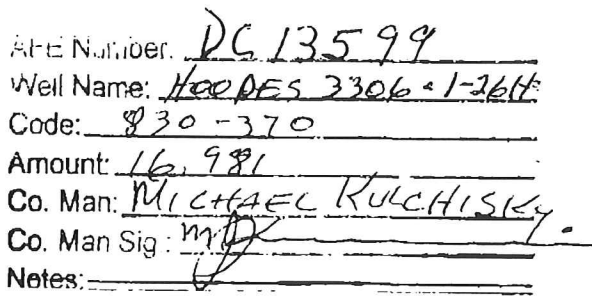 AFE Number: DC 13599
Well Name: HOODES 3306 • 1-26H
Code: 830-370
Amount: 16,981
Co. Man: MICHAEL KULCHISKY.
Co. Man Sig:
Notes: